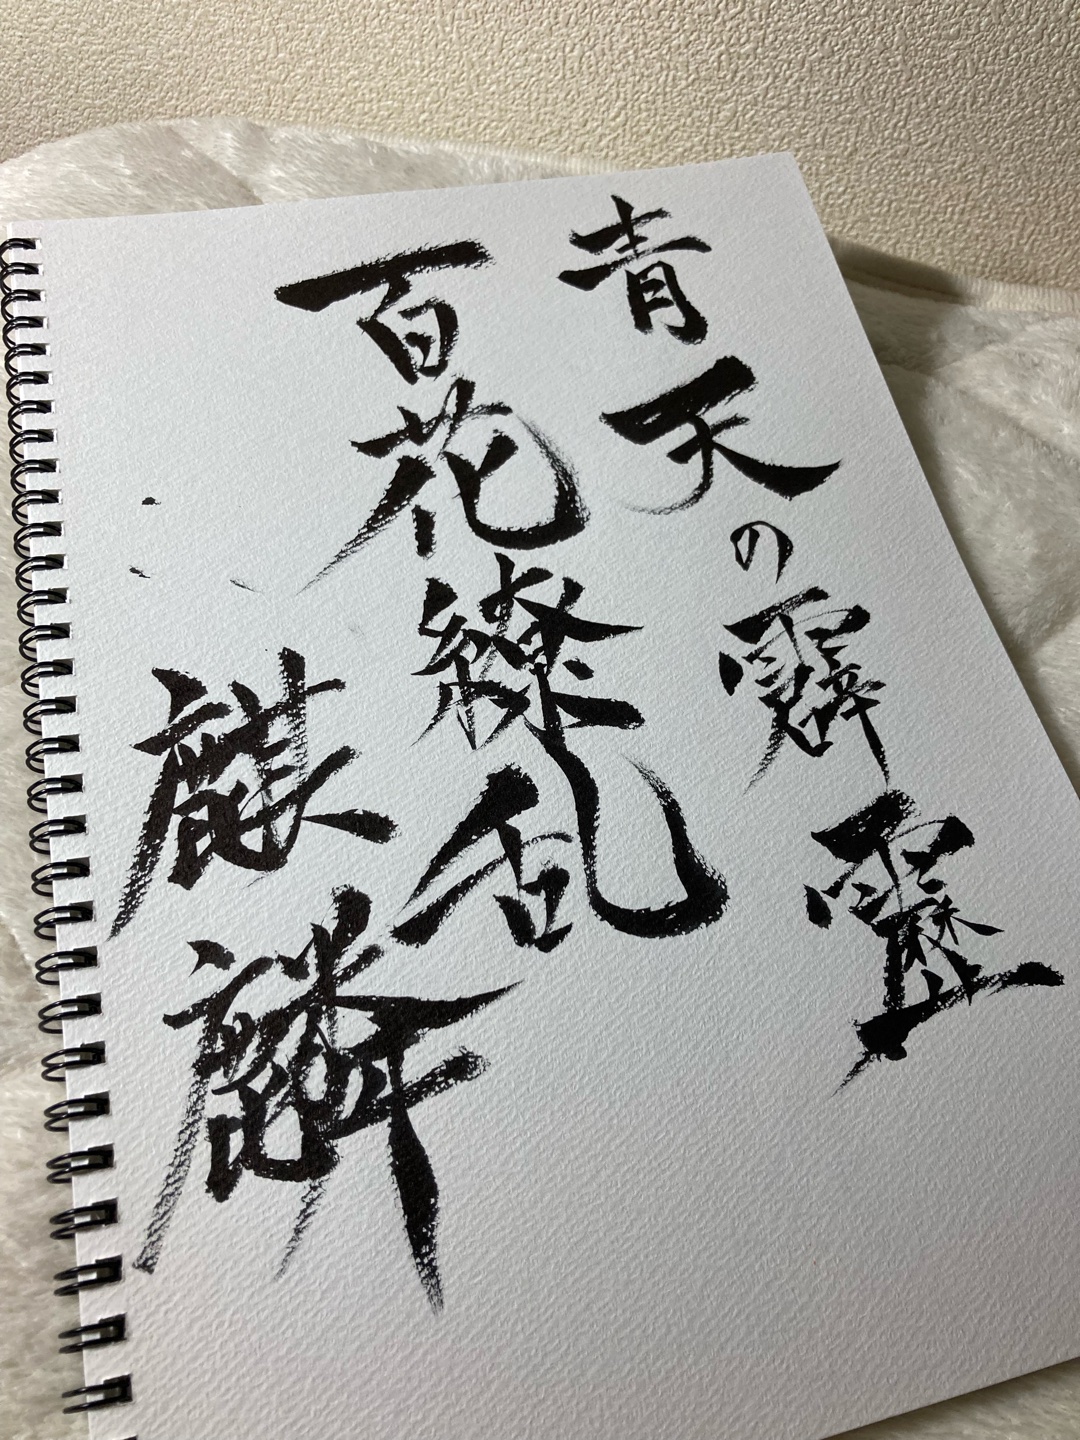 青天の霹靂
百花繚乱
麒麟